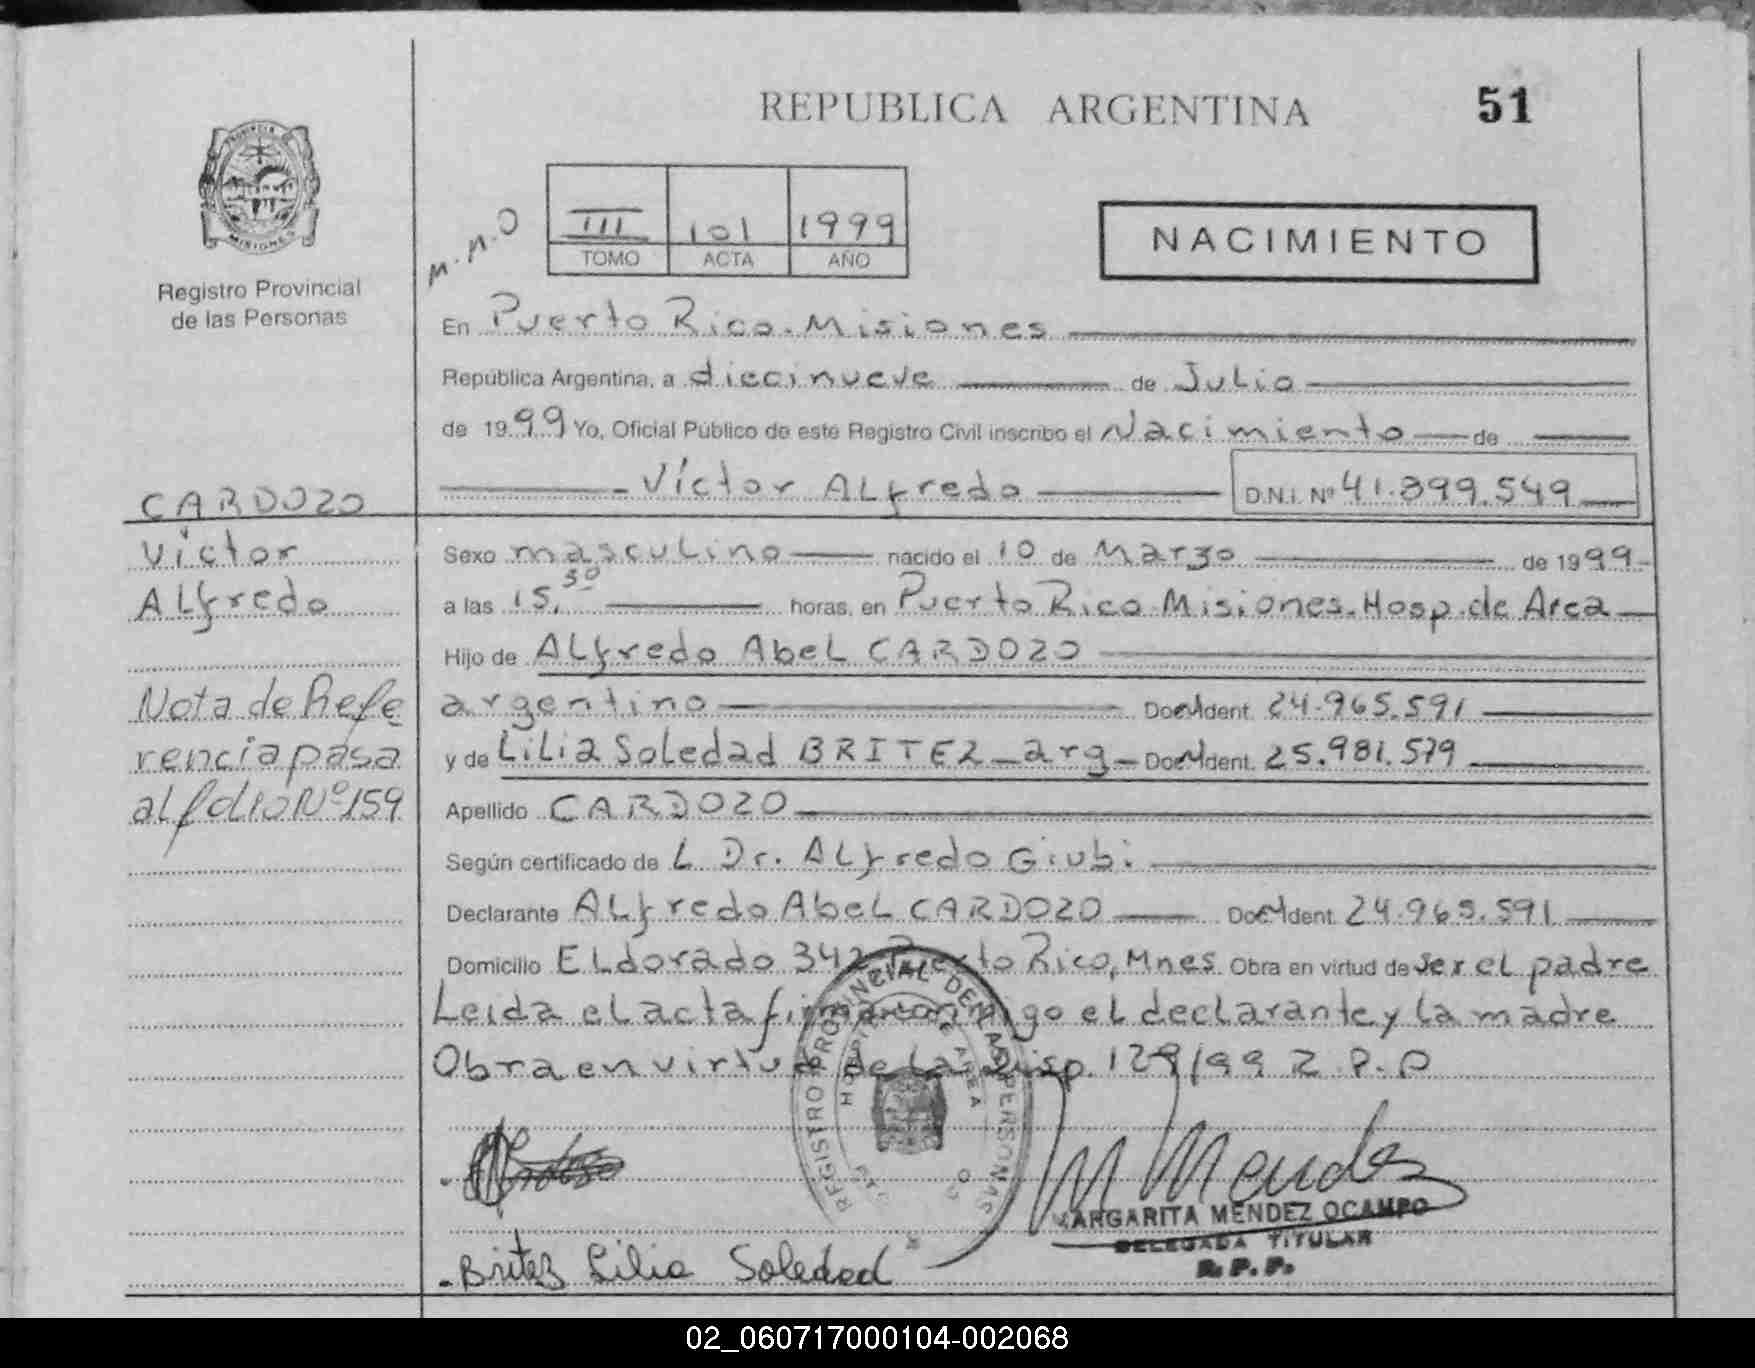 REPUBLICA ARGENTINA
51
PROVINCIA DE
MISIONES
Registro Provincial
de las Personas
M.M.O
III 101 1999
TOMO ACTA AÑO
NACIMIENTO
En Puerto Rico - Misiones
República Argentina, a diecinueve de Julio
de 1999 Yo, Oficial Público de este Registro Civil inscribo el Nacimiento de
Víctor ALfredo D.N.I. Nº 41.899.549
CARDOZO
Víctor
ALfredo
Nota de Refe
rencia pasa
al folio Nº 159
Sexo mascuLino nacido el 10 de Marzo de 1999
a las 15,30 horas, en Puerto Rico Misiones. Hosp. de Area
Hijo de ALfredo AbeL CARDOZO
argentino Doc. Ident. 24.965.591
y de LiLia SoLedad BRITEZ - arg - Doc. Ident. 25.981.579
Apellido CARDOZO
Según certificado de L Dr. ALfredo Giubi
Declarante ALfredo AbeL CARDOZO Doc. Ident. 24.965.591
Domicilio ELdorado 342 Puerto Rico, Mnes. Obra en virtud de ser eL padre
Leida eL acta firman conmigo eL declarante y La madre
Obra en virtud de La Disp. 129/99 R.P.P
REGISTRO PROVINCIAL DE LAS PERSONAS
M Mendez
MARGARITA MENDEZ OCAMPO
DELEGADA TITULAR
R.P.P.
Britez Lilia Soledad
02_060717000104-002068